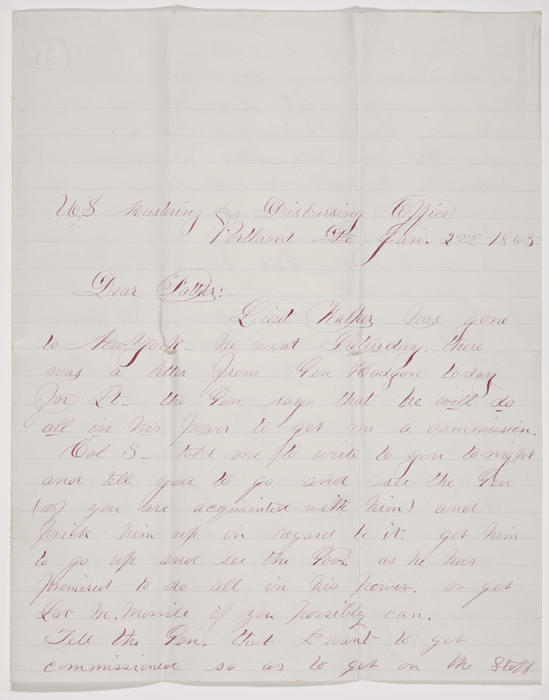 U.S. Mustering and Disbursing Office
Portland Me Jan. 2nd 1865
Dear Father:
Lieut Walker has gone
to New York - he went Saturday. there
was a letter from Gen Hodgon to-day
for Lt. the Gen says that he will do
all in his power to get me a commission.
Col told me to write to you to-night
and tell you to go and see the Gen
(if you are acquainted with him) and
prick him up in regard to it. get him
to go up and see the Gov. as he has
promised to do all in his power. or get
Lot M. Morrile if you possibly can.
Tell the Gen. that I want to get
commissioned so as to get on the Staff